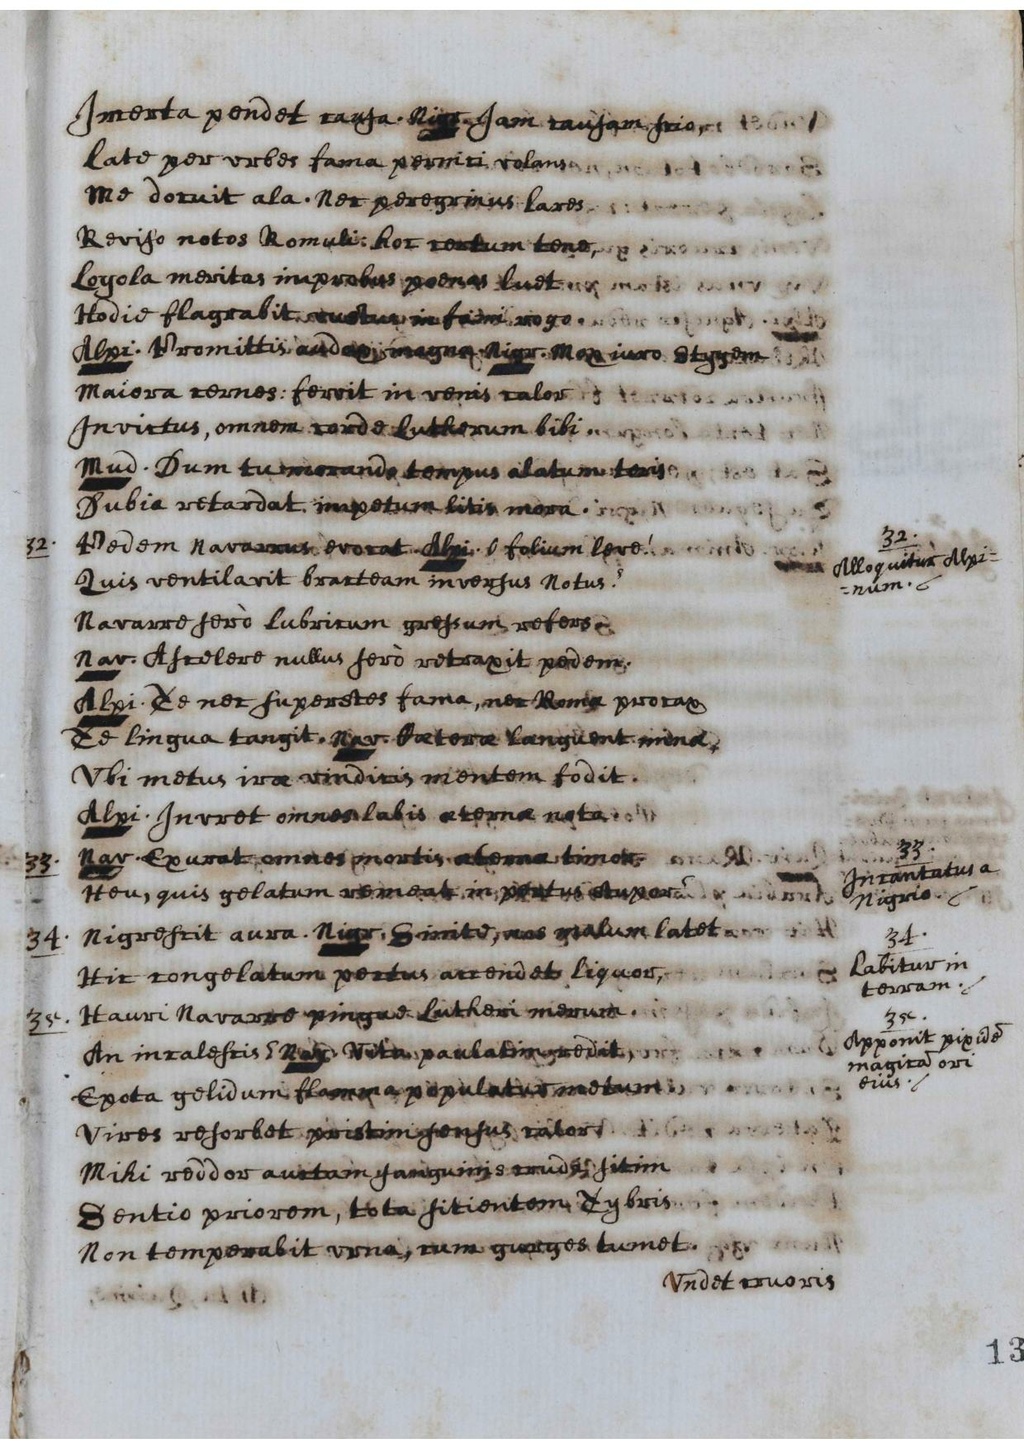 Incerta pendet causa. Nigr. Jam causam scio,
Late per vrbes fama pernici volans
Me docuit ala. Nec peregrinus lares
Reviso notos Romuli: hoc certum tene,
Loyola meritas improbus poenas luet
Hodie flagrabit rogo.
Alpi. Promittis audax magna. Nigr. Mox iuro Stygem
Maiora cernes: fervit in venis calor
Invictus, omnem corde Lutherum bibi.
Mud. Dum tu morando tempus alatum teris
Dubia retardat impetum litis mora.
32. Pedem Navarrus evocat. Alpi. O folium leve!
Quis ventilavit bracteam inversus Notus?
Navarre serò lubricum gressum refers
Nav. A scelere nullus serò retraxit pedem.
Alpi. Te nec superstes fama, nec Roma procax
Te lingua tangit. Nav. Caeterae languent minae,
Vbi metus irae vindicis mentem fodit.
Alpi. Invret omnes labis aeternae nota.
33. Nav. Exurat omnes mortis aeternae timor.
Heu, quis gelatum remeat in pectus stupor?
34. Nigrescit aura. Nigr. Sinite, malum latet
Hic congelatum pectus accendet liquor,
35. Hauri Navarre pingue Lutheri merum.
An incalescis? Nav. Vita paulatim redit,
Expota gelidum flamma populatur metum
Vires resorbet pristinas sensus calor
Mihi reddor auctam sanguinis crudi sitim
Sentio priorem, tota sitientem Tybris
Non temperabit vrna, cum gurges tumet.
Vndet cruoris
32.
Alloquitur Alpi=
=num.
33.
Incantatus a
Nigrio.
34.
Labitur in
terram.
35.
Apponit pixidē
magicā ori
eius.
13